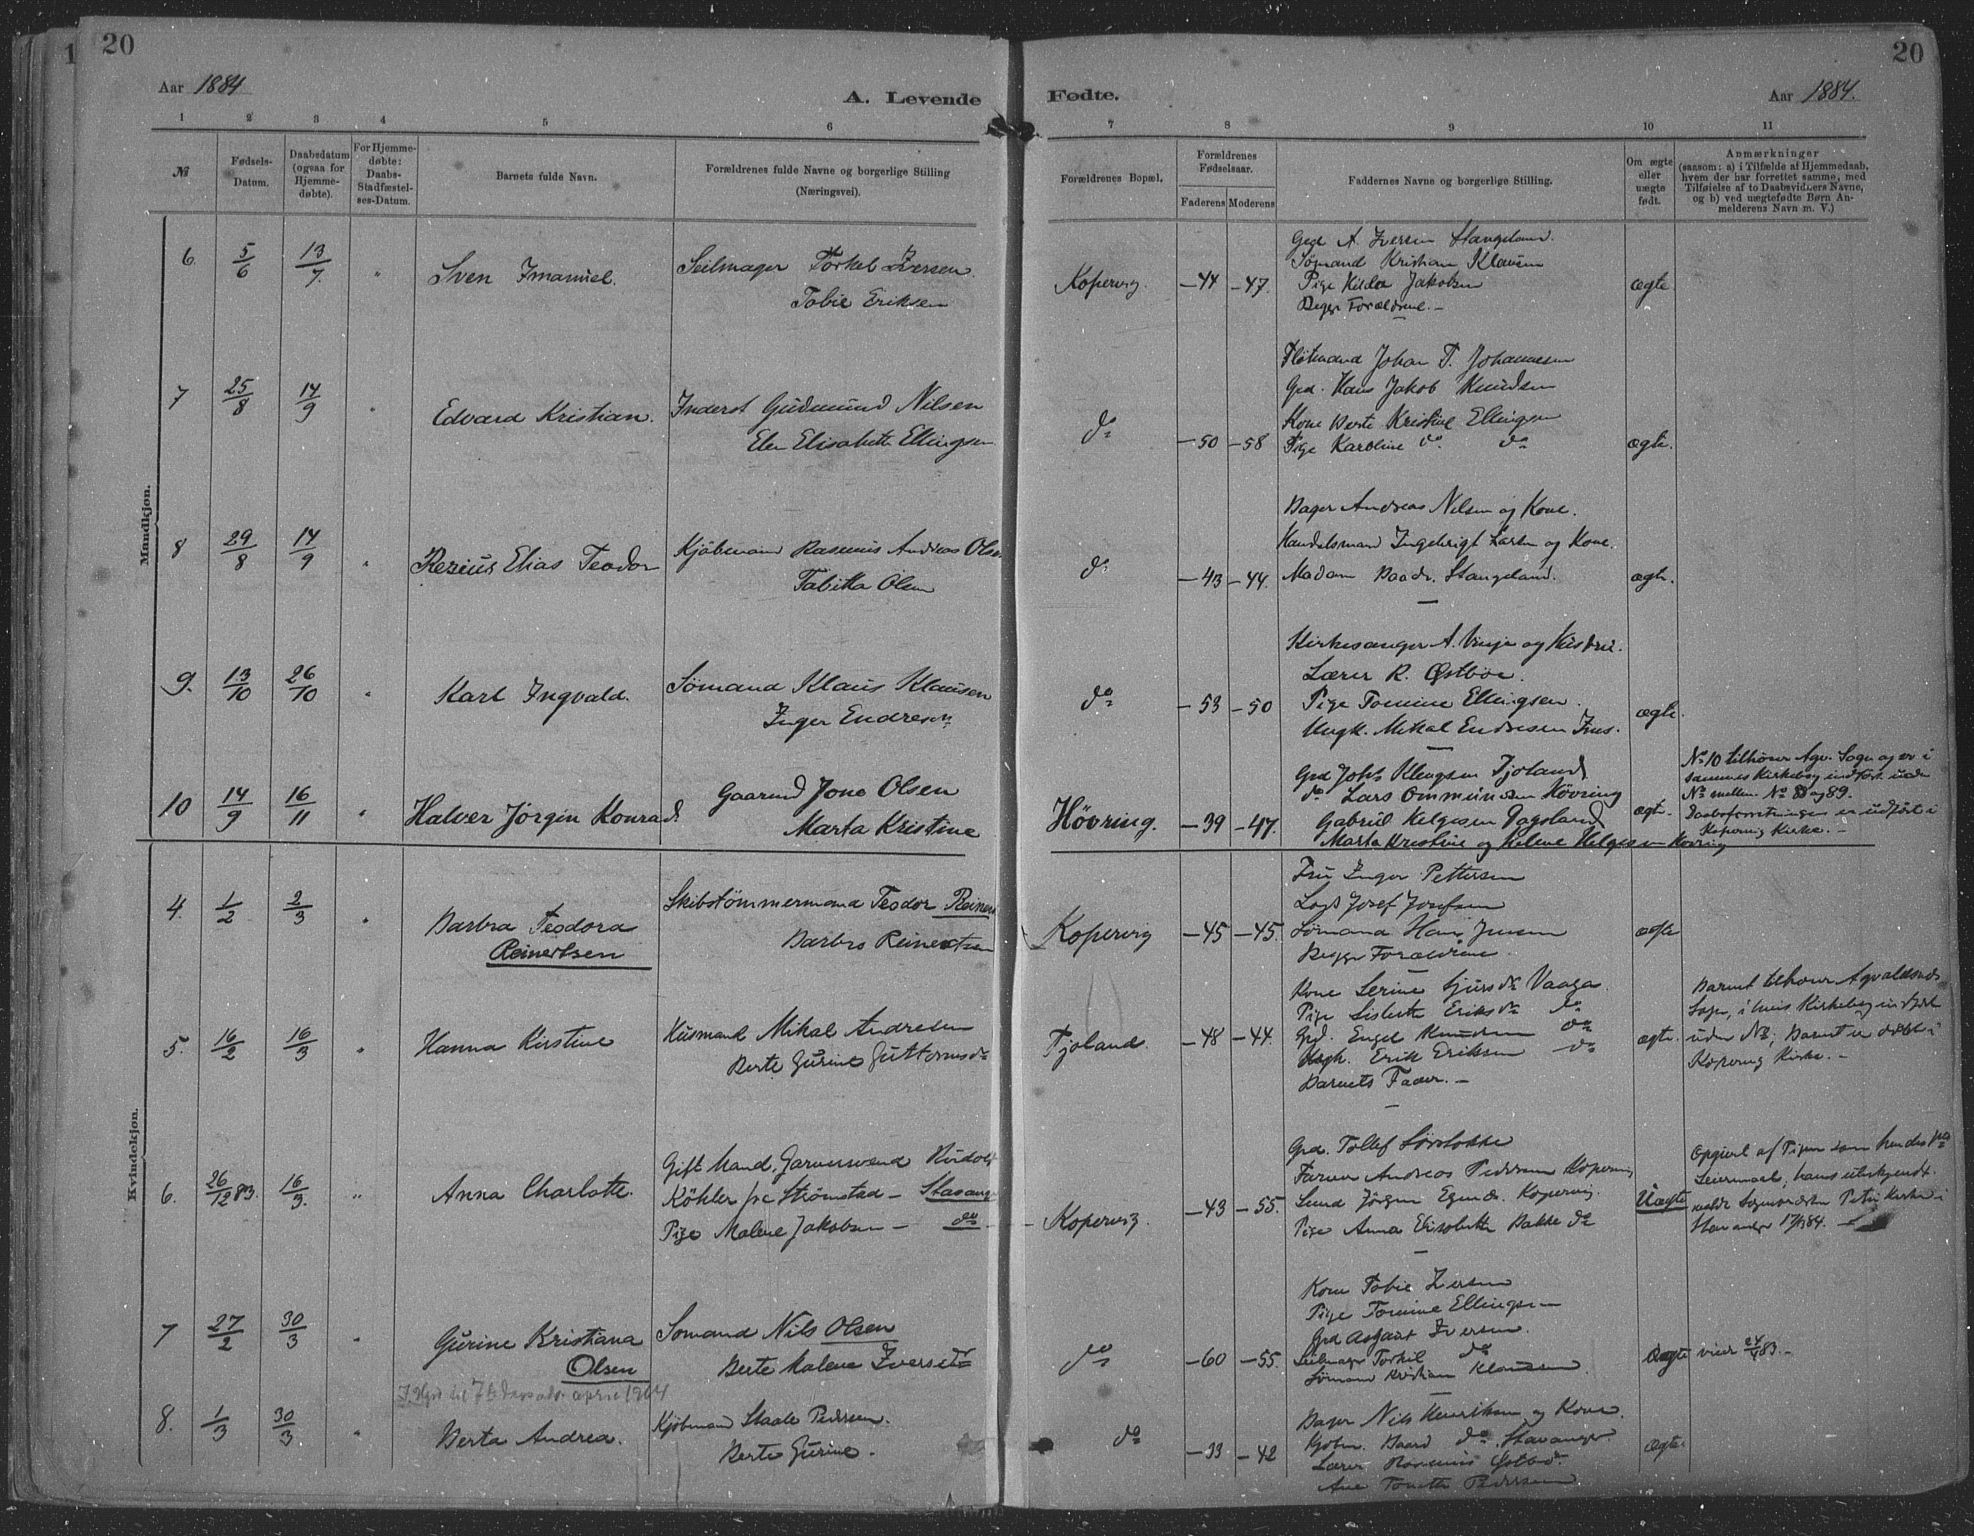 20
Aar 1884
A. Levende
1 2 3 4 5 6
№
Fødsels-Datum.
Daabsdatum (ogsaa for Hjemmedøbte).
For Hjemmedøbte: Daabs-Stadfæstelses-Datum.
Barnets fulde Navn.
Forældrenes fulde Navne og borgerlige Stilling
(Næringsvei).
Mandkjøn.
6. 5/6 13/7. " Sven Imanuel. Seilmager Torkel Iversen.
Tobie Eriksen
7 25/8 14/9 " Edvard Kristian. Inderst Gudmund Nilsen
Elen Elisabeth Ellingsen
8 29/8 14/9 " Rezius Elias Teodor Kjøbmand Rasmus Andreas Olsen
Tabitta Olsen
9. 13/10 26/10 " Karl Ingvald. Sømand Klaus Klausen
Inger Endresen
10 14/9 16/11 " Halver Jørgin Konrad. Gaarmd Jone Olsen
Marta Kristine
Kvindekjøn.
4. 1/2 2/3 " Barbra Teodora Skibstømmermand Teodor Reiners
Reinertsen Barbro Reinertsen
5. 16/2 16/3 " Hanna Kirstine Husmand Mikal Andresen
Berte Gurine Guttormsdr
6. 26/12 83. 16/3. " Anna Charlotte. Gift Mand, Garversvend Rudolf
Köhler fra Strømstad – Stavanger
Pige Malene Jakobsen – do
7 27/2 30/3 " Gurine Kristiana Sømand Nils Olsen
Olsen Berte Malene Iversdr
april 1964
8. 1/3 30/3 " Berta Andrea. Kjøbmand Staale Pedersen.
Berte Gurine.
20
Fødte.
Aar 1884.
7 8 9 10 11
Forældrenes Bopæl.
Forældrenes Fødselsaar.
Faderens Moderens
Faddernes Navne og borgerlige Stilling.
Om ægte eller uægte født.
Anmærkninger
(saasom: a) i Tilfælde af Hjemmedaab,
hvem der har forrettet samme, med
Tilføielse af to Daabsvidners Navne,
og b) ved uægtefødte Børn Anmelderens Navn m. V.)
Grd A. Iversen Stangeland.
Sømand Kristian Klausen
Kopervig. –44 –47. Pige Hilda Jakobsen ægte
Begge Forældrene. –
Fløtmand Johan T. Johannesen
Grd. Hans Jakob Knudsen
Kone Berte Kristine Ellingsen
do –50 –58 Pige Karoline do do ægte.
Bager Andreas Nilsen og Kone.
Handelsmand Ingebrigt Larsen og Kone.
do –43 –44. Madam Stangeland. ægte.
Kirkesanger A. Vinje og Hustru.
Lærer R. Østbøe.
do –53 –50 Pige Tomine Ellingsen. ægte.
Ungk. Mikal Endresen
Grd Johs Klengsen Tjoland
do Lars Ommundsen Høvring
Høvring. –39 –47. Gabriel Helgesen ægte.
Marta Kristine og Helene Helgesen Høvring
No 10 tilhører Agv. Sogn og er i
sammes Kirkebog indført under
No mellem No 88 og 89.
Daabsforretningen er udført i
Kopervig Kirke. –
Fru Inger Pettersen
Lods Josef Josefsen
Kopervig –45 –45. Sømand Hans Jensen ægte
Begge Forældrene.
Kone Serine Sjursdr Vaaga.
Pige Lisbeth Eriksdr do
Tjoland. –48 –44. Grd. Engel Knudsen do ægte.
Ungk. Erik Eriksen do
Barnets Fader. –
Barnet tilhører Agvaldsnes
Sogn, i hvis Kirkebog indført
under No; Barnet er døbt i
Kopervig Kirke. –
Grd. Tollef Sørstokke
Farver Andreas Pedersen Kopervig
Kopervig. –43 –55. Jørgen Kopervig. Uægte
Pige Anna Elisabeth Bakke do
Opgivet af Pigen som hendes
Leiermaal, hans
Petri Kirke i
Stavanger 84. –
Kone Tobie Iversen
Pige Tomine Ellingsen
Grd Asgaut Iversen.
do –60 –55. Seilmager Torkil do Ægte viede 83. –
Sømand Kristian Klausen
Bager Nils Henriksen og Kone.
do –33 –42 Kjøbm. Baard do Stavanger. Ægte.
Lærer Rasmus Østbø.
Ane Tomette Pedersen